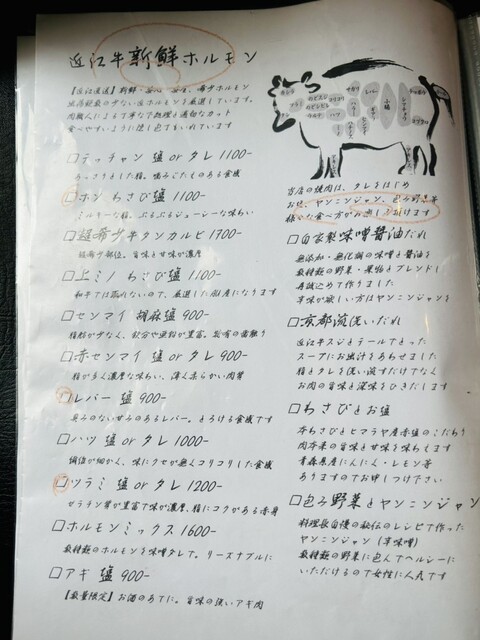 近江牛新鮮ホルモン
【近江直送】新鮮・安心・安全、希少ホルモン
出荷頭数の少ない近江ホルモンを厳選しています。
肉職人による丁寧な下処理と適切なカット
食べやすいように隠し包丁をいれています
□テッチャン 塩 or タレ 1100-
あっさりとした脂、噛みごたえのある食感
□ホソ わさび塩 1100-
ミルキーな脂、ぷるぷるジューシーな味わい
□超希少牛タンカルビ 1700-
超希少部位。旨味と甘味が濃厚
□上ミノ わさび塩 1100-
和牛では取れないので、厳選した国産になります
□センマイ 胡麻塩 900-
脂肪が少なく、鉄分や亜鉛が豊富。独特の歯触り
□赤センマイ 塩 or タレ 900-
脂が多く濃厚な味わい、薄く柔らかい肉質
□レバー 塩 900-
臭みのない甘みのあるレバー。とろける食感です
□ハツ 塩 or タレ 1000-
繊維が細かく、味にクセが無くコリコリした食感
□ツラミ 塩 or タレ 1200-
ゼラチン質が豊富で味が濃厚、脂にコクがある赤身
□ホルモンミックス 1600-
数種類のホルモンを味噌タレで。リーズナブルに
□アギ 塩 900-
【数量限定】お酒のあてに。旨味の強いアギ肉
サガリ
レバー
小腸
当店の焼肉は、タレをはじめ
お塩、ヤンニンジャン、包み野菜等
様々な食べ方がお楽しみ頂けます
□自家製味噌醤油だれ
無添加・無化調の味噌と醤油を
数種類の野菜・果物とブレンドし
丹誠込めて作りました
辛味が欲しい方はヤンニンジャンを
□京都流洗いだれ
近江牛スジとテールでとった
スープにお出汁をあわせました
脂とタレを洗い流すだけでなく
お肉の旨味と深味をひきだします
□わさびとお塩
本わさびとヒマラヤ産赤塩のこだわり
肉本来の旨味と甘味を味わえます
青森県産にんにく・レモン等
ありますのでお申しつけ下さい
□包み野菜とヤンニンジャン
料理長自慢の秘伝のレシピで作った
ヤンニンジャン(辛味噌)
数種類の野菜に包んでヘルシーに
いただけるので女性に人気です